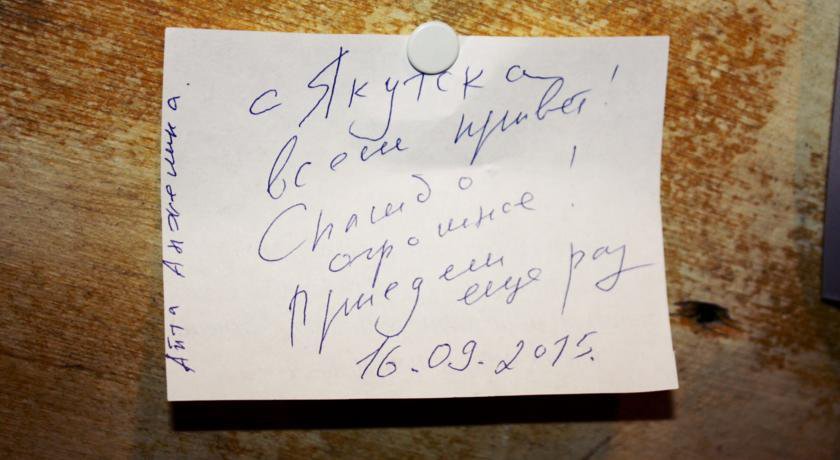 с Якутска
всем привет!
Спасибо
огромное!
Приедем
еще раз
16.09.2015.
Айта Анжелика.